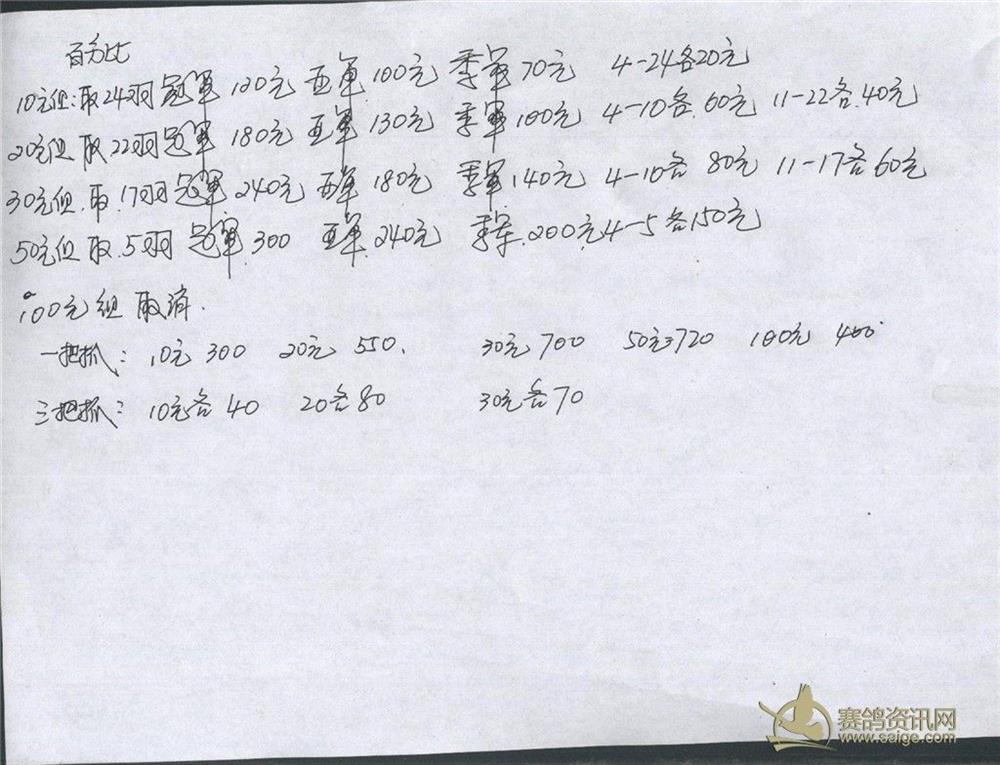 百分比
10元组:取24羽 冠军120元 亚军100元 季军70元 4-24各20元
20元组 取22羽 冠军180元 亚军130元 季军100元 4-10各.60元 11-22各.40元
30元组.取.17羽 冠军240元 亚军180元 季军.140元 4-10各80元 11-17各60元
50元组 取.5羽 冠军.300 亚军.240元 季军.200元 4-5各150元
100元组 取消.
一把抓: 10元 300 20元 550. 30元 700 50元 720 100元 400
三把抓: 10元各40 20各80 30元各70
赛鸽资讯网
www.saige.com